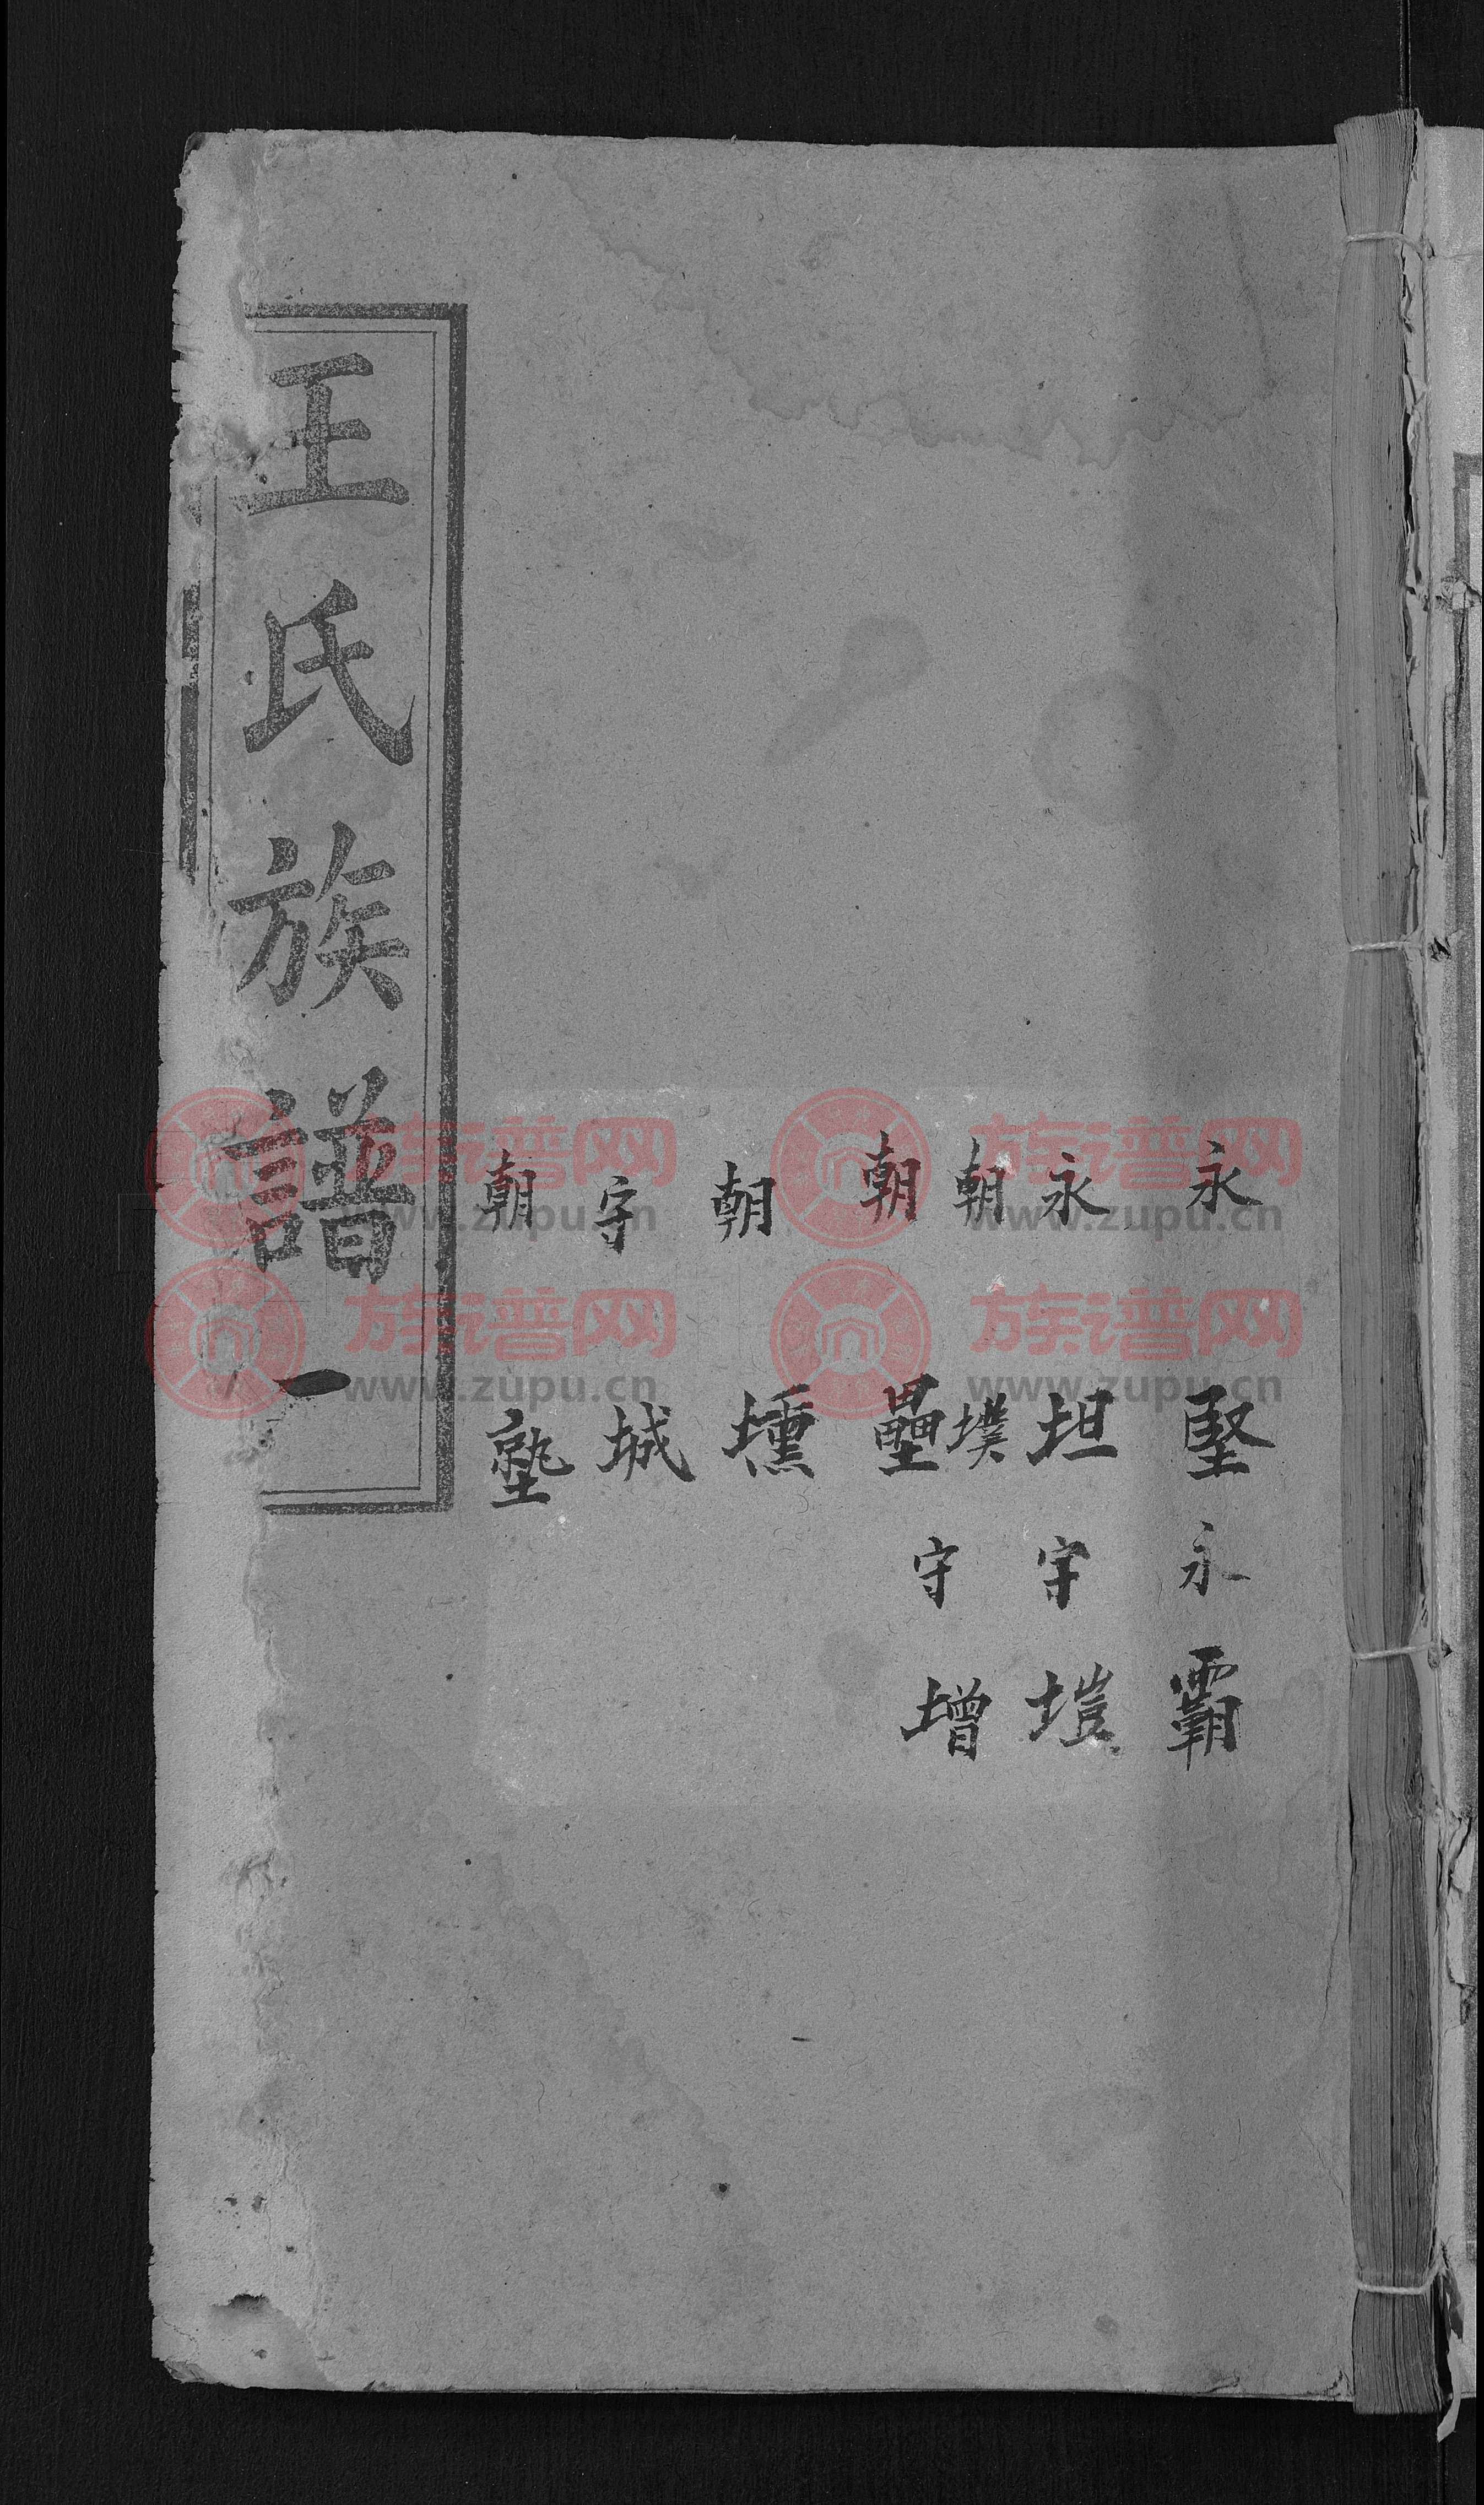 永 堅 永 霸
永 坦 守 塏
朝 墣 守 增
朝 壘
朝 壎
守 城
朝 塾
王氏族譜 一
族谱网
www.zupu.cn
族谱网
www.zupu.cn
族谱网
www.zupu.cn
族谱网
www.zupu.cn